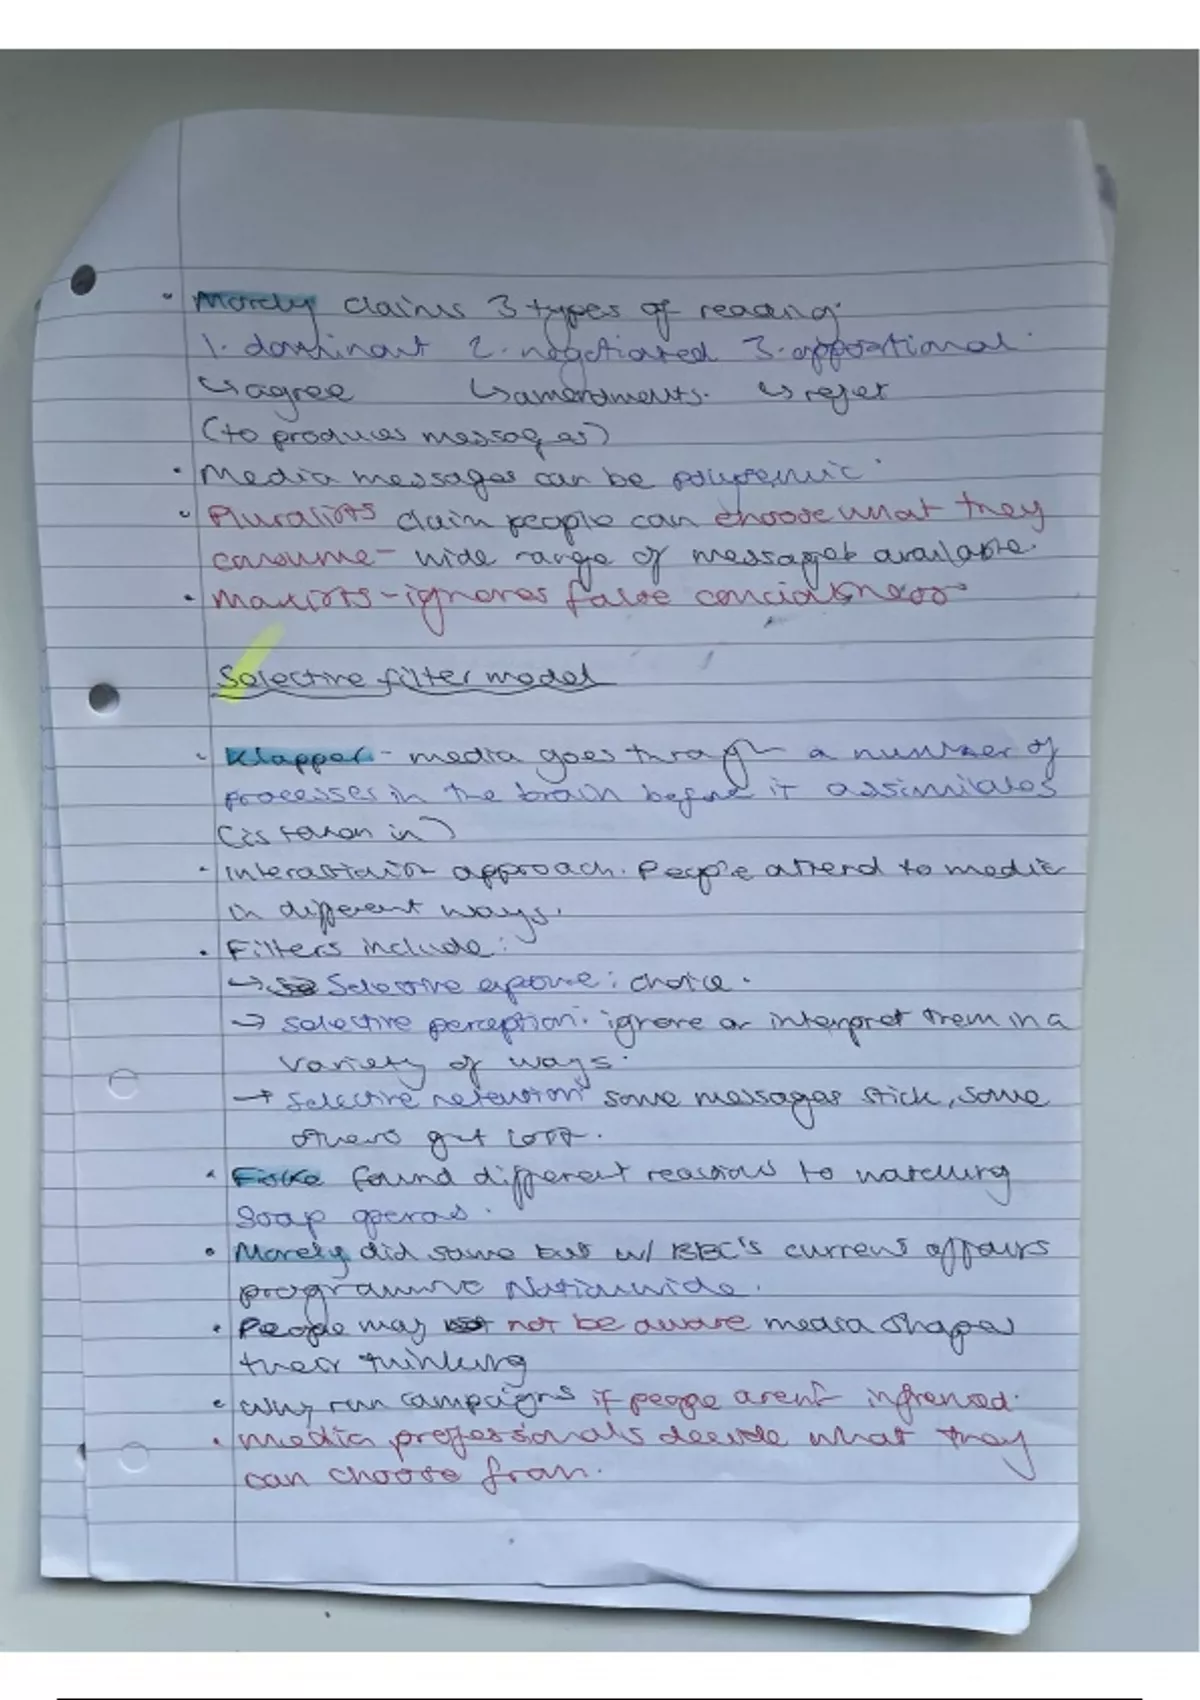 • Morely claims 3 types of reading.
1. dominant 2. negotiated 3. oppositional.
↳ agree ↳ amendments. ↳ reject
(to produces messages)
• Media messages can be polysemic.
• Pluralists claim people can choose what they
consume - wide range of messages available.
• Marxists - ignores false conciousness
Selective filter model
• Klapper - media goes through a number of
processes in the brain before it assimilates
(is taken in)
• Interactionist approach. People attend to media
in different ways.
• Filters include:
→ Selective exposure: choice.
→ selective perception. ignore or interpret them in a
variety of ways.
→ selective retention some messages stick, some
others get lost.
• Fiske found different reactions to watching
soap operas.
• Morely did same but w/ BBC's current affairs
programme Nationwide.
• People may not be aware media shapes
their thinking
• Why run campaigns if people arent infrenced.
• media professionals decide what they
can choose from.